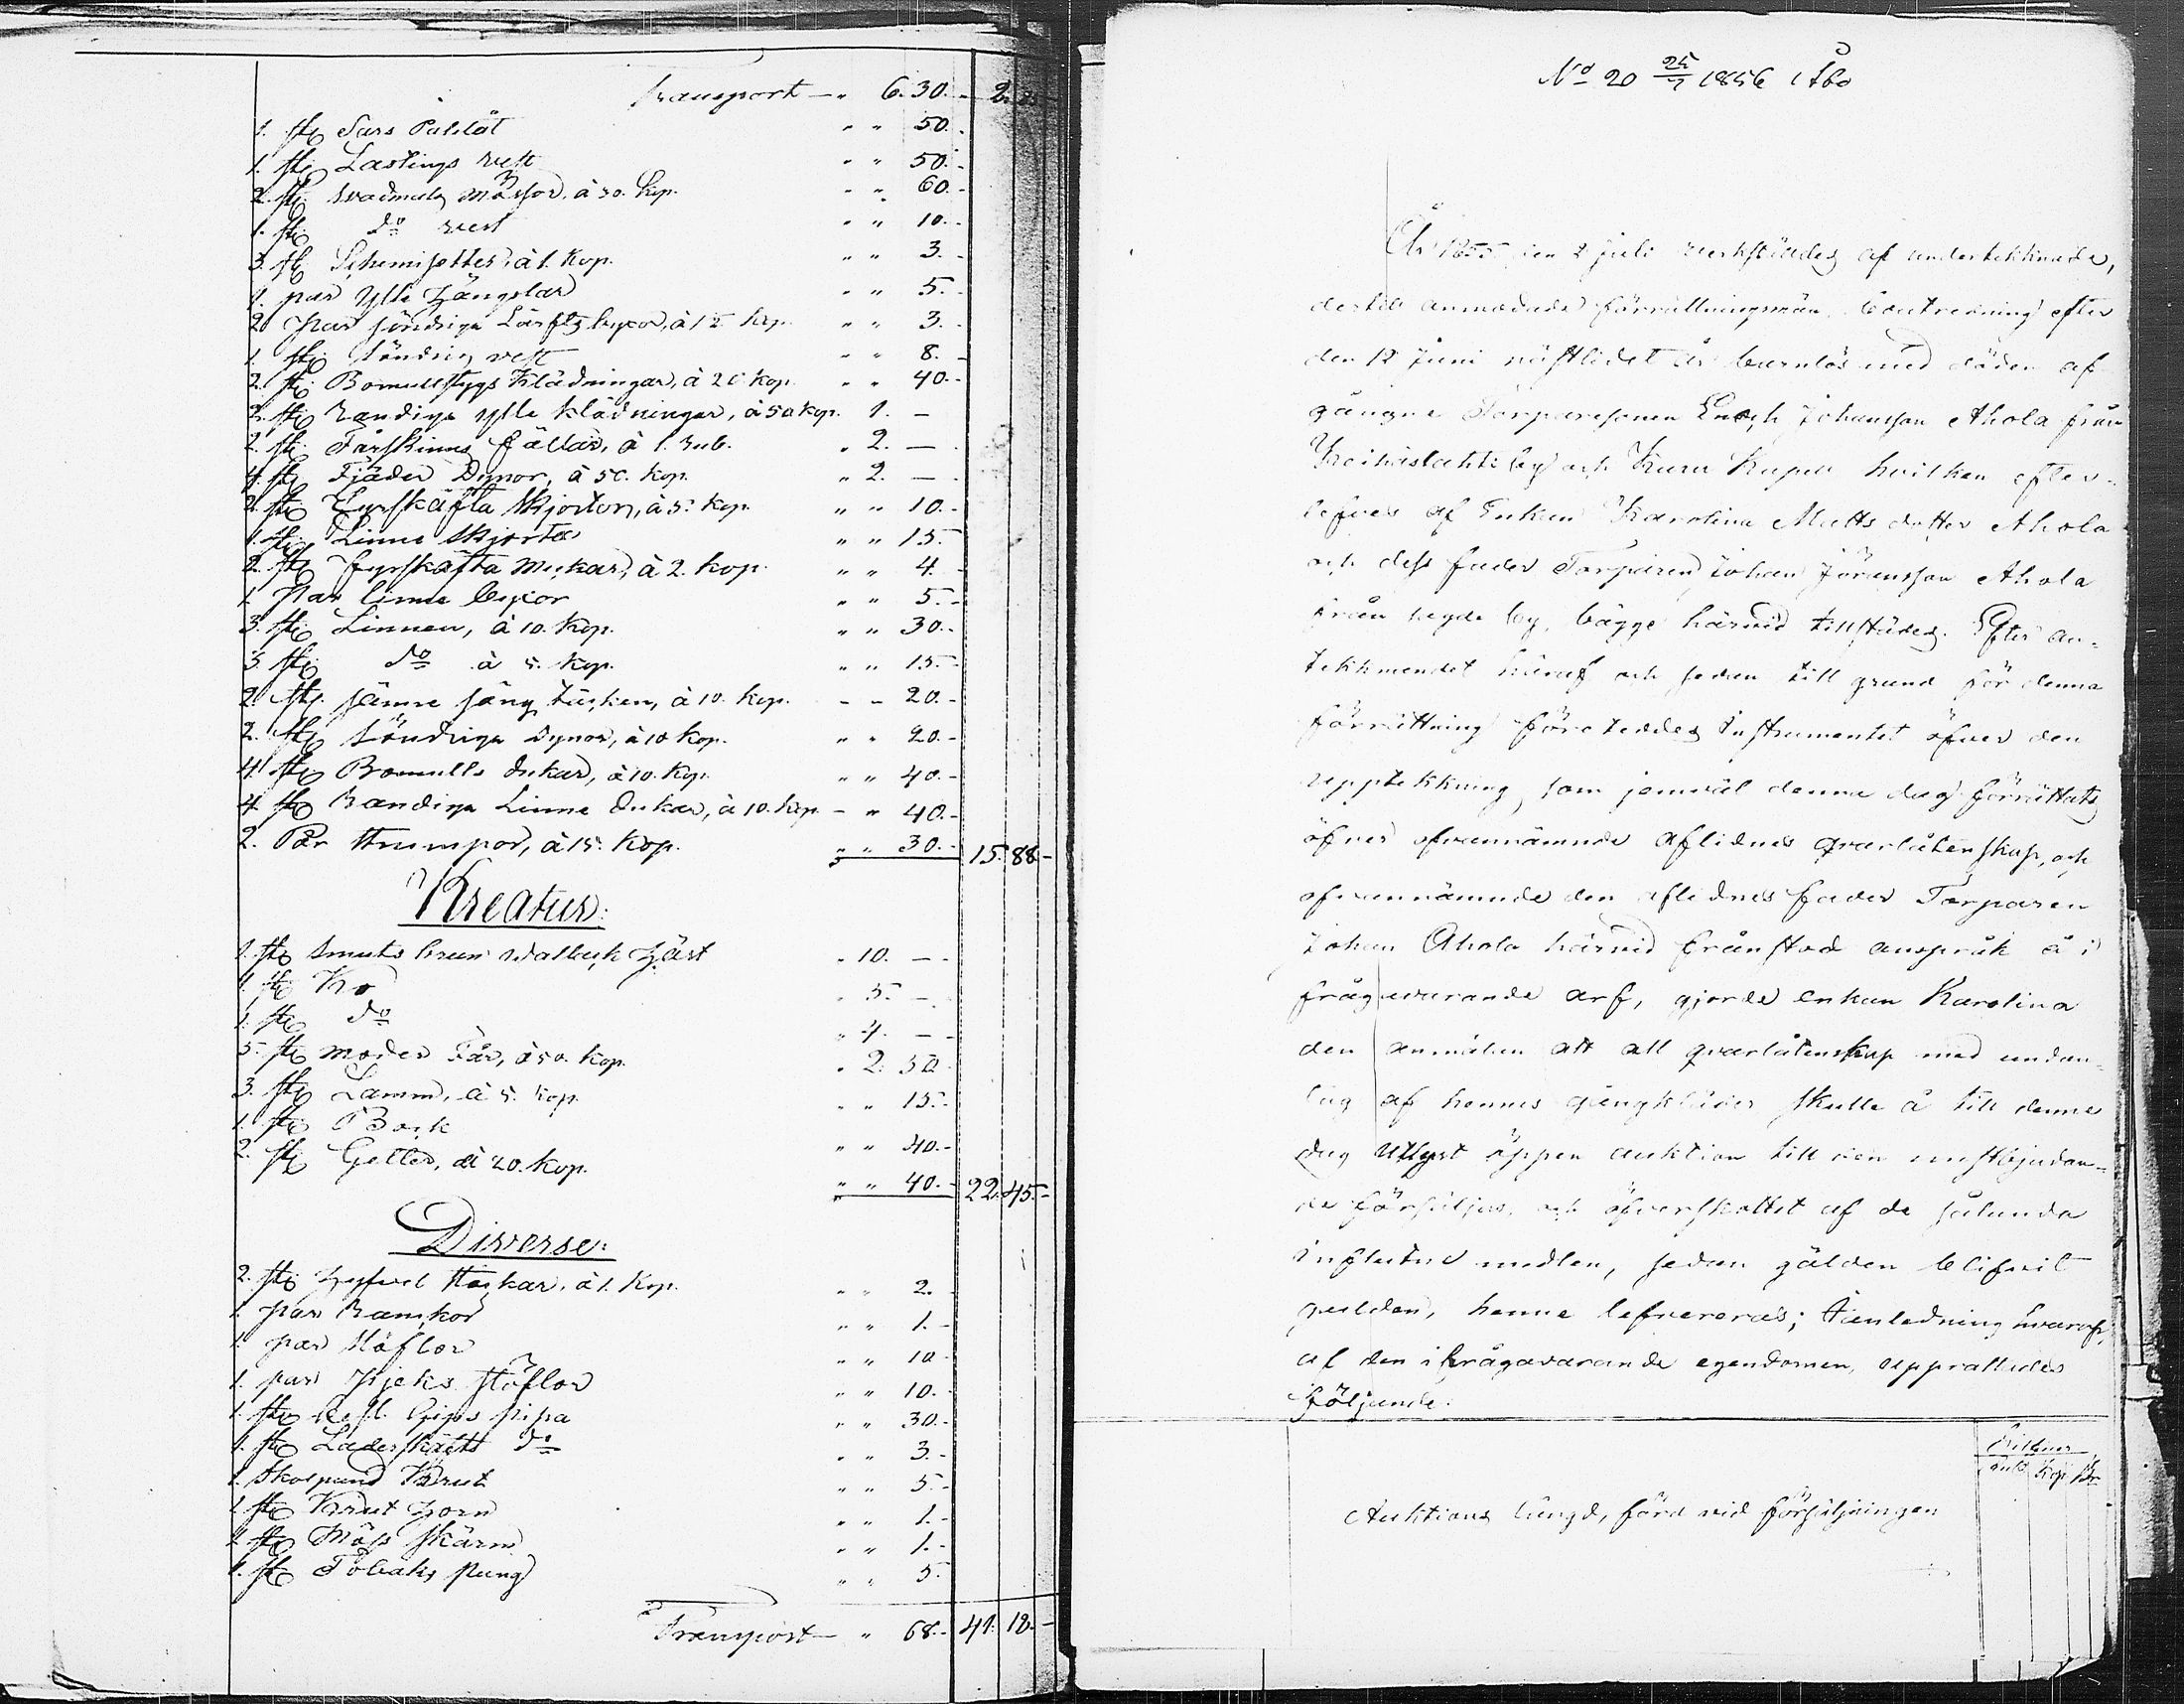 Transport — „ 6. 30. - 2.
1. st. Sars Paltåt „ „ 50. -
1. st. Lastings vest „ „ 50. -
2. st. vadmals mössor, à 30. kop. „ „ 60. -
1. st. do vest „ „ 10. -
3. st. Schemisetter, à 1. kop. „ „ 3. -
1. par ylle Hängslar „ „ 5. -
2 par söndriga Lärfts byxor, à 1½ kop. „ „ 3. -
1. st. söndrig vest „ „ 8. -
2. st. Bomullstygs Klädningar, à 20 kop. „ „ 40. -
2. st. randiga ylle klädningar, à 50 kop. 1. —
2. st. Fårskinns fällar, à 1. rub. „ 2. —
4. st. Fjäder Dynor, à 50. kop. „ 2. —
2. st. Fyrskäfta skjortor, à 5. kop. „ „ 10. -
1. st. Linne skjorta „ „ 15. -
2. st. fyrskäfta , à 2. kop. „ „ 4. -
1. Par linne byxor „ „ 5. -
3. st. Linnen, à 10. kop. „ „ 30. -
3. st. do à 5. kop. „ „ 15. -
2. st. sämre säng täcken, à 10. kop. „ „ 20. -
2. st. söndriga dynor, à 10 kop. „ „ 20. -
4. st. Bomulls dukar, à 10. kop. „ „ 40. -
4. st. randiga Linne dukar, à 10. kop. - „ 40. -
2. Par strumpor, à 15. kop. „ „ 30. - 15. 88. -
Kreatur:
1. st. smuts brun Vallack Häst „ 10. —
1. st. Ko „ 5. —
1. st. do „ 4. —
5. st. moder Får, à 50. kop. „ 2. 50 -
3. st. Lamm, à 5. kop. „ „ 15. -
1. st. Bock „ „ 40. -
2. st. Getter, à 20. kop. „ „ 40. - 22. 45. -
Diverse:
2. st. Hyfvel stockar, à 1. Kop. „ „ 2. -
1. par Remskor „ „ 1. -
1. par stöflor „ „ 10 -
1. par stöflor „ „ 10. -
1. st. Gips pipa „ „ 30. -
1. st. Läderskaftt do „ „ 3. -
1. skålpund Krut „ „ 5. -
1. st. Krut Horn „ „ 1. -
1. st. Möss skärm „ „ 1. -
1. st. Tobaks pung „ „ 5. -
Transport — „ 68. - 41. 12. -
No 20 25/7 1856 i Åbo
År 1855 den 2 juli verkstäldes af undertecknade,
dertill anmodade förrättningsmän boutredning efter
den 12 Juni nästlidet år barnlös med döden af
gångne Torparesonen Enoch Johansson Ahola från
by och Kuru Kapell hvilken efter-
lefves af Enkan Karolina Matts dotter Ahola
och dess fader Torparen Johan Jöransson Ahola
från sagde by, bägge härvid tillstädes. Efter an-
tekknandet häraf och sedan till grund för denna
förrättning företeddes Instrumentet öfver den
upptekkning, som jemväl denna dag förrättats
öfver ofvannämnde aflidnes qvarlåtenskap, och
ofvannämnde den aflidnes fader Torparen
Johan Ahola härvid frånstod anspråk å i
frågavarande arf, gjorde enkan Karolina
den anmälan att all qvarlåtenskap med undan-
tag af hennes gångkläder skulle å till denne
dag utlyst öppen auktion till den mestbjudan-
de försäljas, och öfverskottet af de sålunda
influtne medlen, sedan gälden blifvit
gulden, henne lefvereras; i anledning hvaraf,
af den ifrågavarande egendomen, upprattades
följande:
Silfver
Rub Kop
Auktions längd, förd vid försäljningen